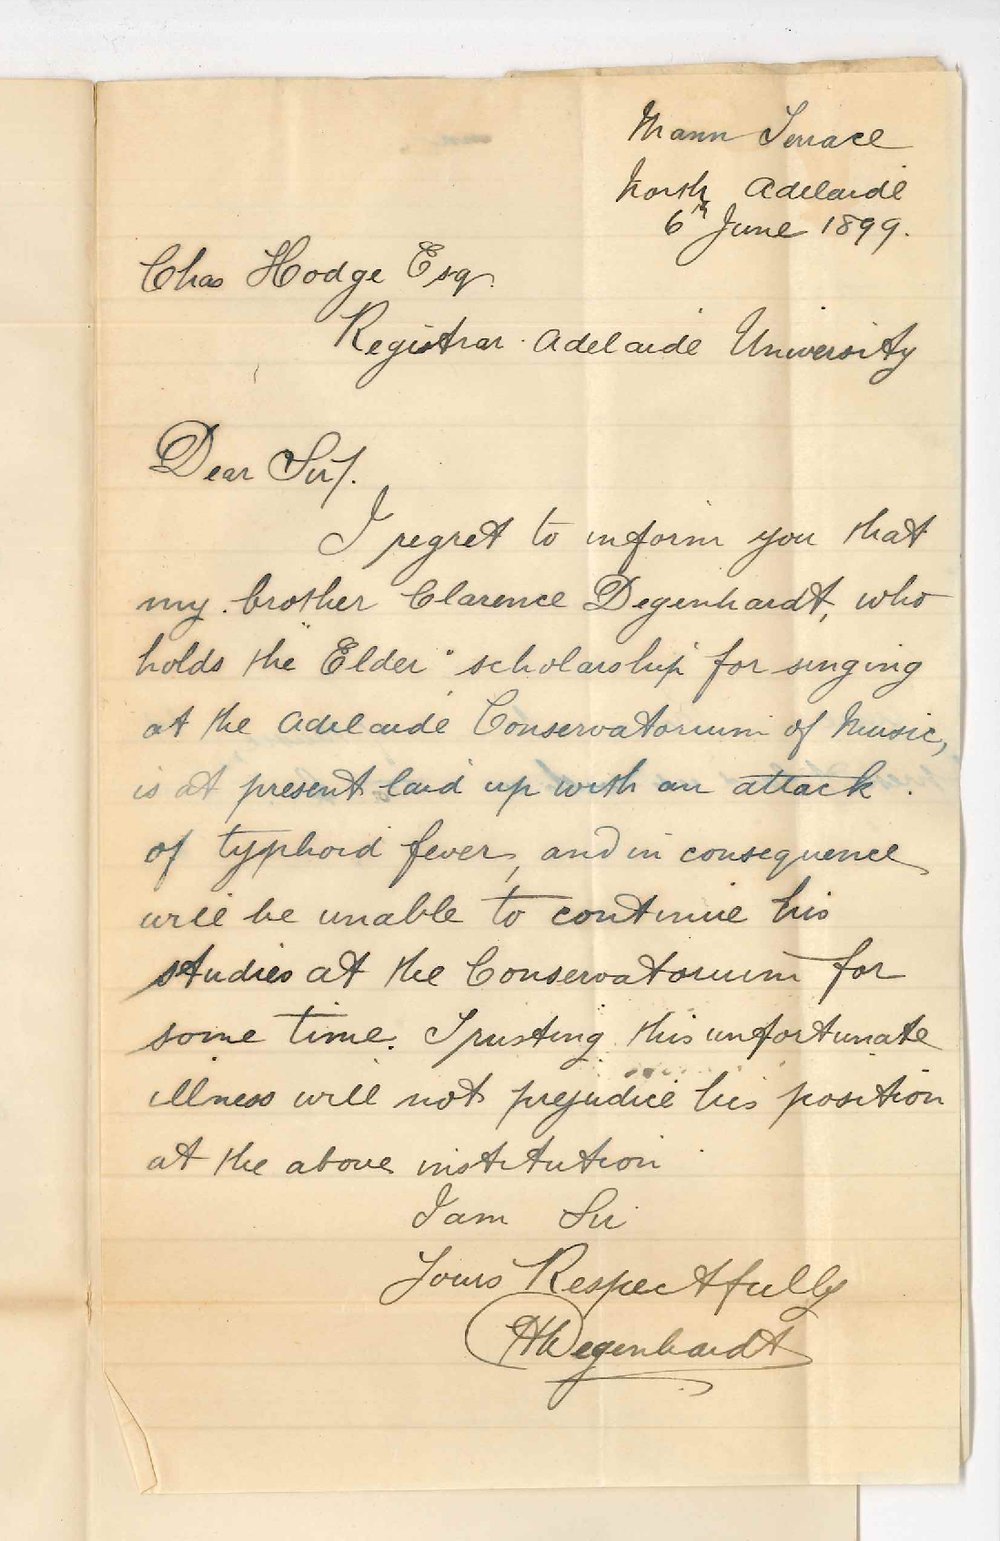 Mann Terrace
North Adelaide
6th June 1899.
Chas Hodge Esq.
Registrar Adelaide University
Dear Sir/.
I regret to inform you that
my brother Clarence Degenhardt, who
holds the "Elder" scholarship for singing
at the Adelaide Conservatorium of Music,
is at present laid up with an attack
of typhoid fever, and in consequence
will be unable to continue his
studies at the Conservatorium for
some time. Trusting this unfortunate
illness will not prejudice his position
at the above institution
I am Sir
Yours Respectfully
Degenhardt